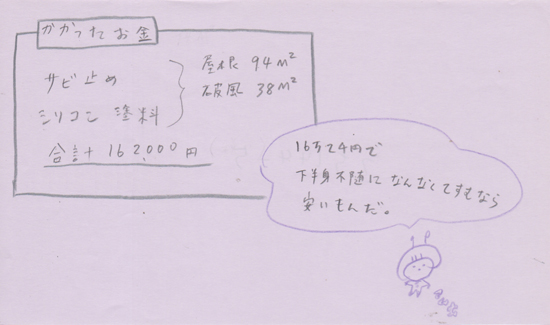 かかったお金
屋根 94m²
サビ止め
破風 38m²
シリコン 塗料
合計 162000円
16万2千円で
下半身不随に なんなくてすむなら
安いもんだ。